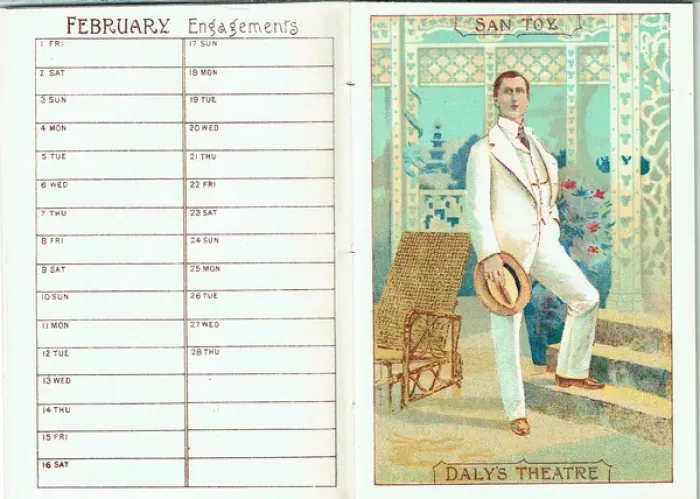 FEBRUARY Engagements
1 FRI
2 SAT
3 SUN
4 MON
5 TUE
6 WED
7 THU
8 FRI
9 SAT
10 SUN
11 MON
12 TUE
13 WED
14 THU
15 FRI
16 SAT
17 SUN
18 MON
19 TUE
20 WED
21 THU
22 FRI
23 SAT
24 SUN
25 MON
26 TUE
27 WED
28 THU
SAN TOY
DALY'S THEATRE